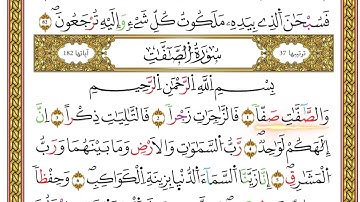 فَسُبْحَٰنَ ٱلَّذِى بِيَدِهِۦ مَلَكُوتُ كُلِّ شَىْءٍ وَإِلَيْهِ تُرْجَعُونَ ٨٣
ترتيبها 37 سُورَةُ ٱلصَّٰٓفَّٰتِ آياتها 182
بِسْمِ ٱللَّهِ ٱلرَّحْمَٰنِ ٱلرَّحِيمِ
وَٱلصَّٰٓفَّٰتِ صَفًّا ١ فَٱلزَّٰجِرَٰتِ زَجْرًا ٢ فَٱلتَّٰلِيَٰتِ ذِكْرًا ٣ إِنَّ
إِلَٰهَكُمْ لَوَٰحِدٌ ٤ رَّبُّ ٱلسَّمَٰوَٰتِ وَٱلْأَرْضِ وَمَا بَيْنَهُمَا وَرَبُّ
ٱلْمَشَٰرِقِ ٥ إِنَّا زَيَّنَّا ٱلسَّمَآءَ ٱلدُّنْيَا بِزِينَةٍ ٱلْكَوَاكِبِ ٦ وَحِفْظًا